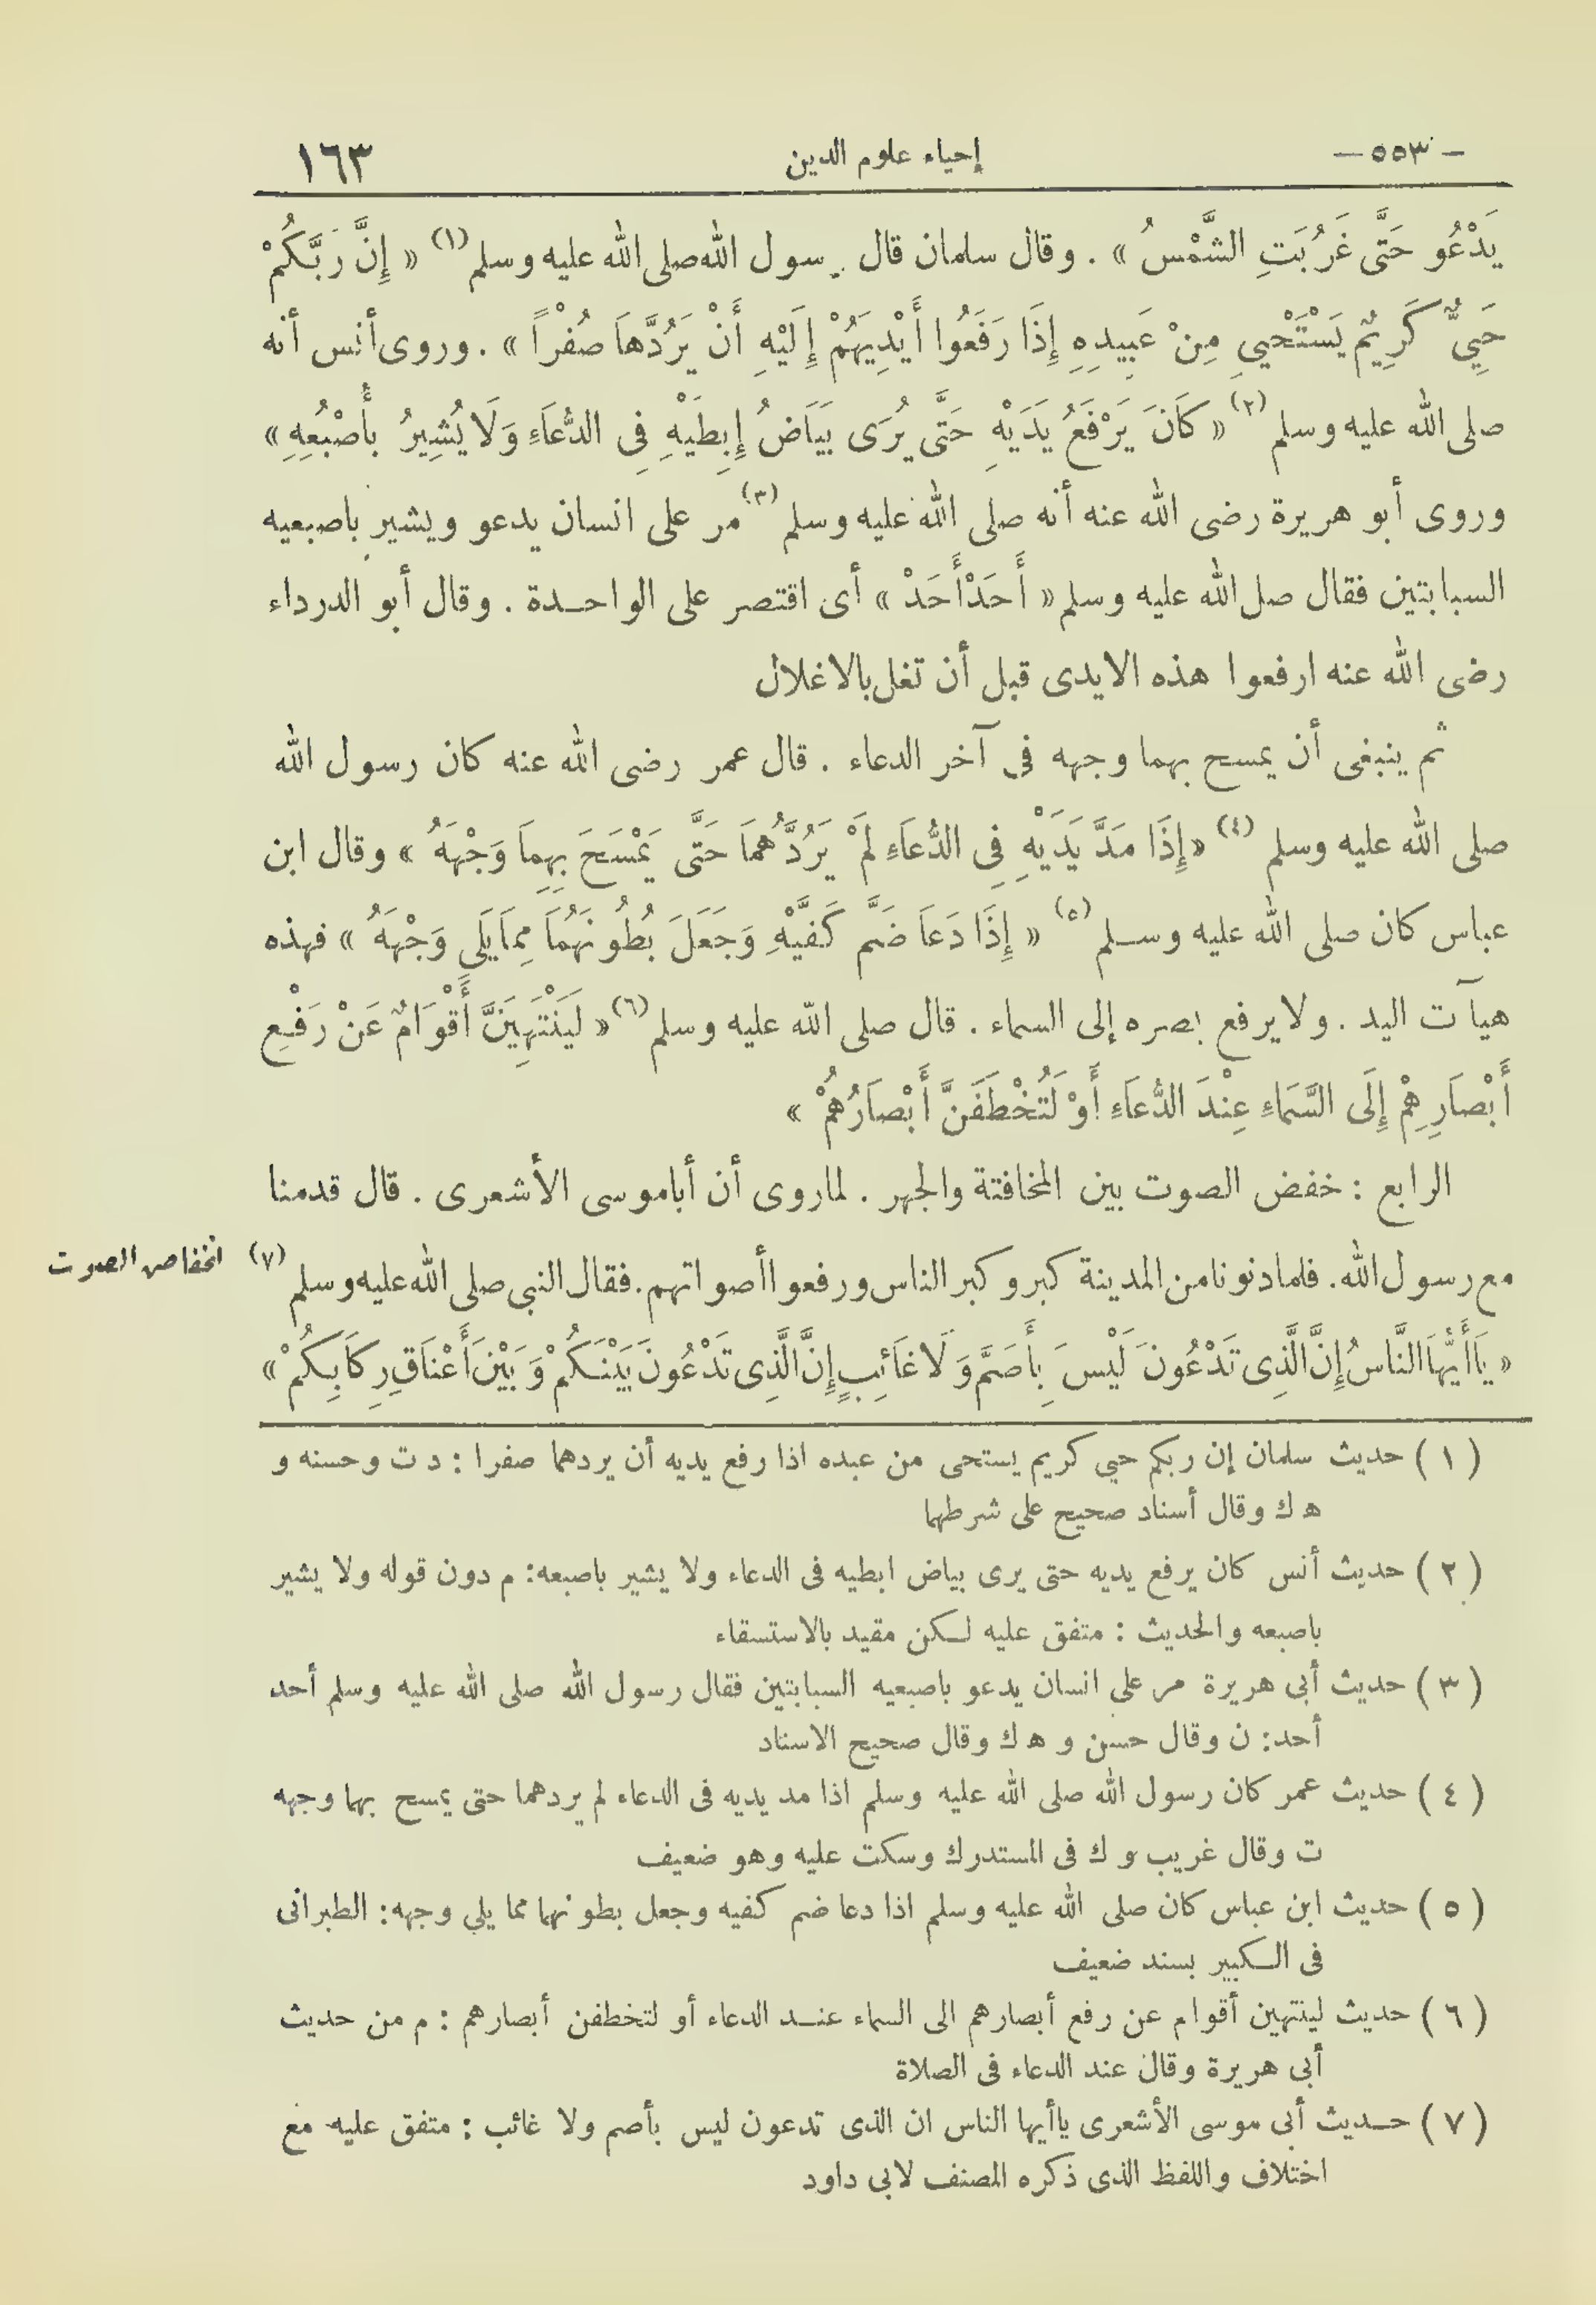 - ٥٥٣ -
إحياء علوم الدين
١٦٣
يَدْعُو حَتَّى غَرُبَتِ الشَّمْسُ » . وقال سلمان قال رسول الله صلى الله عليه وسلم (١) « إِنَّ رَبَّكُمْ
حَيِيٌّ كَرِيمٌ يَسْتَحْيِي مِنْ عَبِيدِهِ إِذَا رَفَعُوا أَيْدِيَهُمْ إِلَيْهِ أَنْ يَرُدَّهَا صُفْراً » . وروى أنس أنه
صلى الله عليه وسلم (٢) « كَانَ يَرْفَعُ يَدَيْهِ حَتَّى يُرَى بَيَاضُ إِبِطَيْهِ فِى الدُّعَاءِ وَلَا يُشِيرُ بأَصْبُعِهِ »
وروى أبو هريرة رضى الله عنه أنه صلى الله عليه وسلم (٣) مر على انسان يدعو ويشير باصبعيه
السبابتين فقال صل الله عليه وسلم « أَحَدْ أَحَدْ » أى اقتصر على الواحدة . وقال أبو الدرداء
رضى الله عنه ارفعوا هذه الايدى قبل أن تغل بالاغلال
ثم ينبغى أن يمسح بهما وجهه فى آخر الدعاء . قال عمر رضى الله عنه كان رسول الله
صلى الله عليه وسلم (٤) « إِذَا مَدَّ يَدَيْهِ فِى الدُّعَاءِ لَمْ يَرُدَّهُمَا حَتَّى يَمْسَحَ بِهِمَا وَجْهَهُ » وقال ابن
عباس كان صلى الله عليه وسلم (٥) « إِذَا دَعَا ضَمَّ كَفَيَّهْ وَجَعَلَ بُطُونَهُمَا مِمَا يَلَى وَجْهَهُ » فهذه
هيآت اليد . ولا يرفع بصره إلى السماء . قال صلى الله عليه وسلم (٦) « لَيَنْتَهِيَنَّ أَقْوَامٌ عَنْ رَفْعِ
أَبْصَارِهِمْ إِلَى السَّمَاءِ عِنْدَ الدُّعَاءِ أَوْ لَتُخْطَفَنَّ أَبْصَارُهُمْ »
الرابع : خفض الصوت بين المخافتة والجهر . لما روى أن أبا موسى الأشعرى . قال قدمنا
مع رسول الله . فلما دنونا من المدينة كبر وكبر الناس ورفعوا أصواتهم . فقال النبى صلى الله عليه وسلم (٧)
انخفاض الصوت
« يَا أَيُّهَا النَّاسُ إِنَّ الَّذِى تَدْعُونَ لَيْسَ بِأَصَمَّ وَلَا غَائِبٍ إِنَّ الَّذِى تَدْعُونَ بَيْنَكُمْ وَبَيْنَ أَعْنَاقِ رِكَابِكُمْ »
( ١ ) حديث سلمان إن ربكم حيي كريم يستحى من عبده اذا رفع يديه أن يردهما صفرا : د ت وحسنه و
ه ك وقال أسناد صحيح على شرطهما
( ٢ ) حديث أنس كان يرفع يديه حتى يرى بياض ابطيه فى الدعاء ولا يشير باصبعه : م دون قوله ولا يشير
باصبعه والحديث : متفق عليه لكن مقيد بالاستسقاء
( ٣ ) حديث أبى هريرة مر على انسان يدعو باصبعيه السبابتين فقال رسول الله صلى الله عليه وسلم أحد
أحد : ن وقال حسن و ه ك وقال صحيح الاسناد
( ٤ ) حديث عمر كان رسول الله صلى الله عليه وسلم اذا مد يديه فى الدعاء لم يردهما حتى يمسح بهما وجهه
ت وقال غريب و ك فى المستدرك وسكت عليه وهو ضعيف
( ٥ ) حديث ابن عباس كان صلى الله عليه وسلم اذا دعا ضم كفيه وجعل بطونهما مما يلي وجهه : الطبرانى
فى الكبير بسند ضعيف
( ٦ ) حديث لينتهين أقوام عن رفع أبصارهم الى السماء عند الدعاء أو لتخطفن أبصارهم : م من حديث
أبى هريرة وقال عند الدعاء فى الصلاة
( ٧ ) حديث أبى موسى الأشعرى ياأيها الناس ان الذى تدعون ليس بأصم ولا غائب : متفق عليه مع
اختلاف واللفظ الذى ذكره المصنف لابى داود